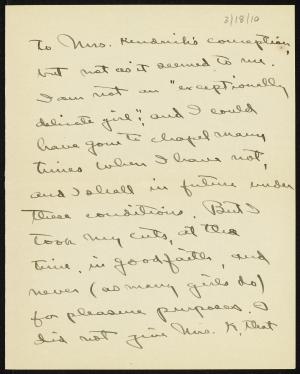 3/18/10
to Mrs. Kendrick's conception,
but not as it seemed to me.
I am not an "exceptionally
delicate girl", and I could
have gone to chapel many
times when I have not,
and I shall in future under
these conditions. But I
took my cuts, at the
time, in good faith, and
never (as many girls do)
for pleasure purposes. I
did not give Mrs. K. that